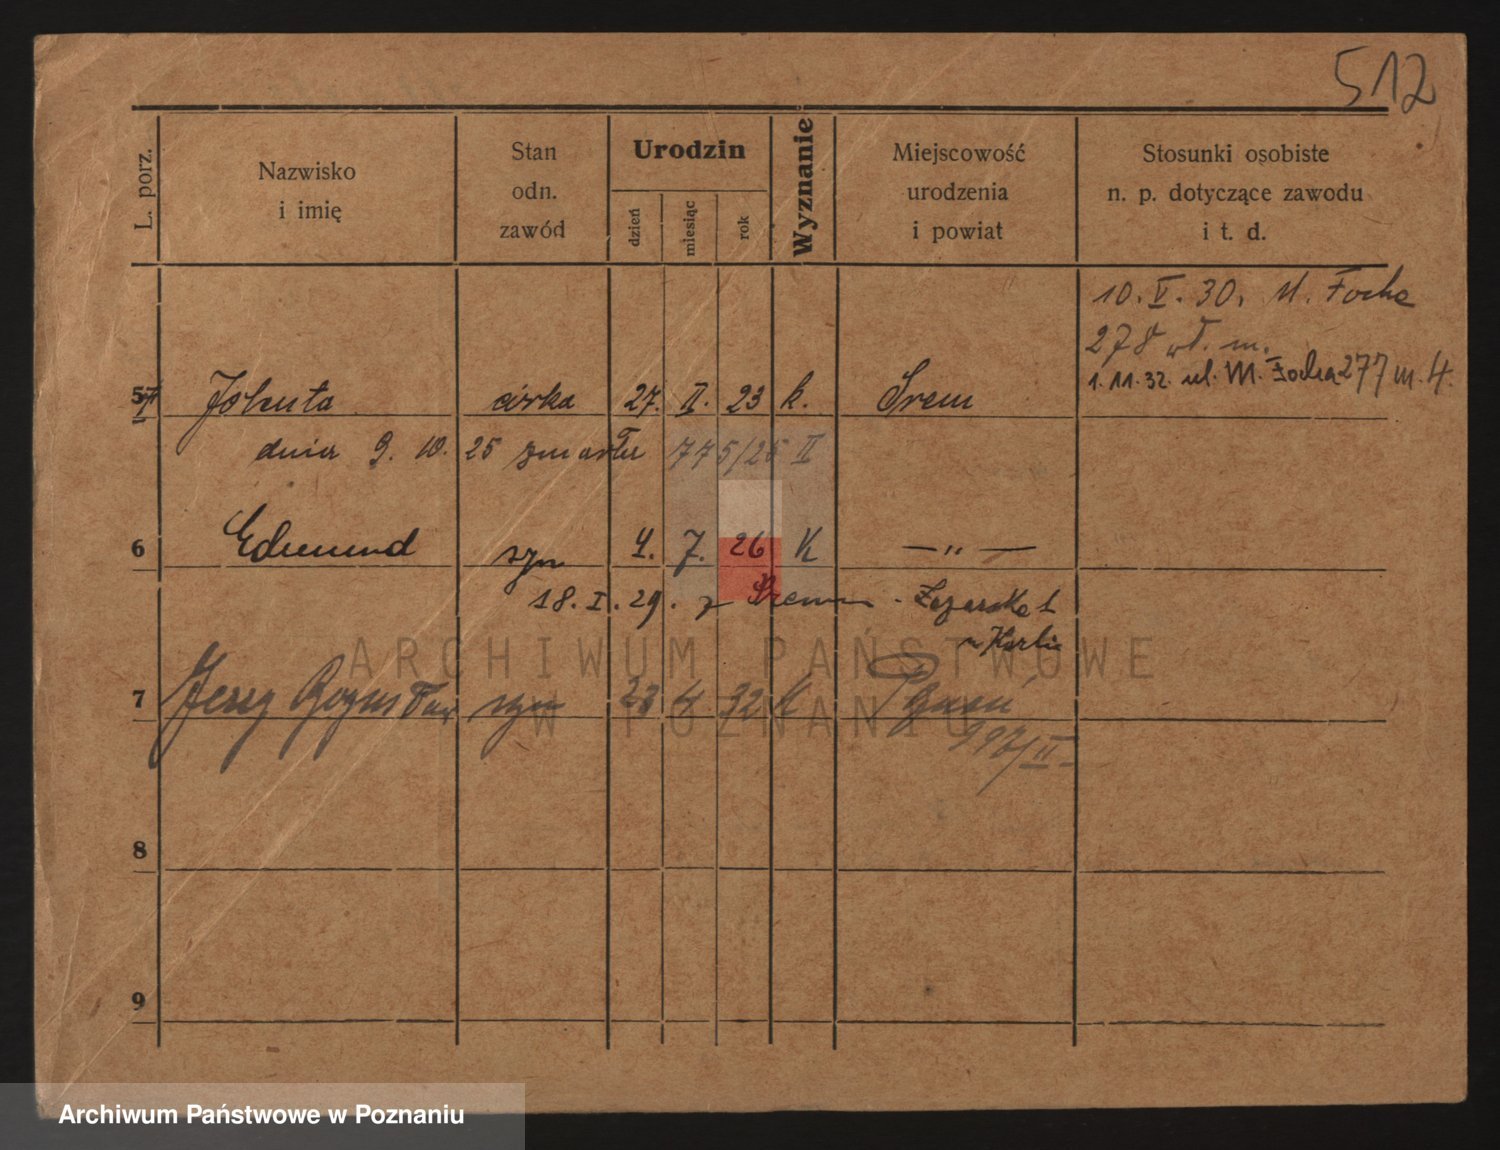 512
L. porz.
Nazwisko
i imię
Stan
odn.
zawód
Urodzin
dzień
miesiąc
rok
Wyznanie
Miejscowość
urodzenia
i powiat
Stosunki osobiste
n. p. dotyczące zawodu
i t. d.
10. V. 30. M. Focha
278 wł. m.
1. 11. 32. ul. M. Focha 277 m. 4.
5 Jolenta córka 27. II. 23 k. Śrem
dnia 9. 10. 25 zmarła 775/25 II
6 Edmund syn 4. 7. 26 K — " —
18. I. 29. z Śremu -
7 Jerzy Bogusław syn 23 4 32 k Poznań
/II
8
9
ARCHIWUM PAŃSTWOWE
W POZNANIU
Archiwum Państwowe w Poznaniu